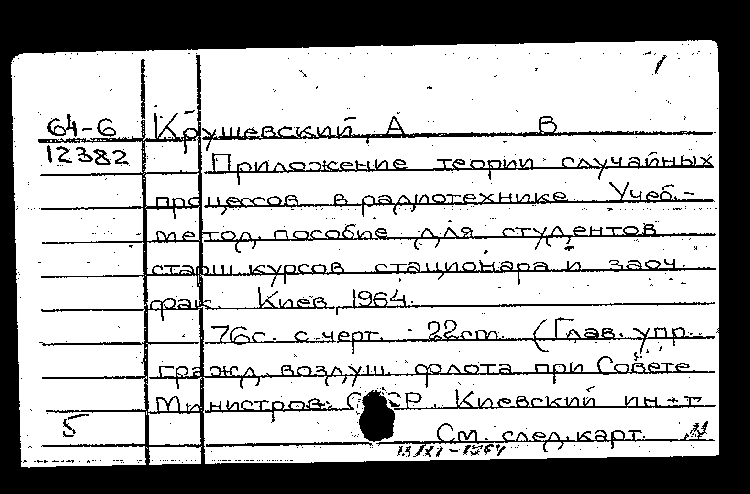 64-6 Крушевский, А В
12382 Приложение теории случайных
процессов в радиотехнике. Учеб.-
метод. пособие для студентов
старш. курсов стационара и заоч.
фак. Киев, 1964.
76с. с черт. 22см. (Глав. упр.
гражд. воздуш. флота при Совете
Министров СССР. Киевский ин-т
5 См. след. карт.